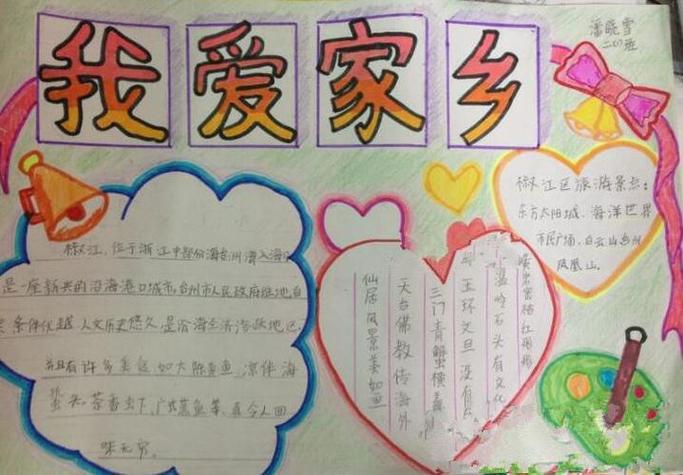 我爱家乡
潘晓雪
二(7)班
椒江,位于浙江中部份海台州湾入海口
是一座新兴的沿海港口城市,台州市人民政府驻地自
条件优越,人文历史悠久,是沿海经济活跃地区,
并且有许多美食,如大陈黄鱼,凉伴海
蜇头,茶香虾、广式蒸鱼等,真令人回
味无穷。
黄岩蜜桔红彤彤
温岭石头有文化
玉环文旦没有
三门青蟹横着
天台佛教传海外
仙居风景美如画
椒江区旅游景点:
东方太阳城、海洋世界
市民广场、白云山
凤凰山。